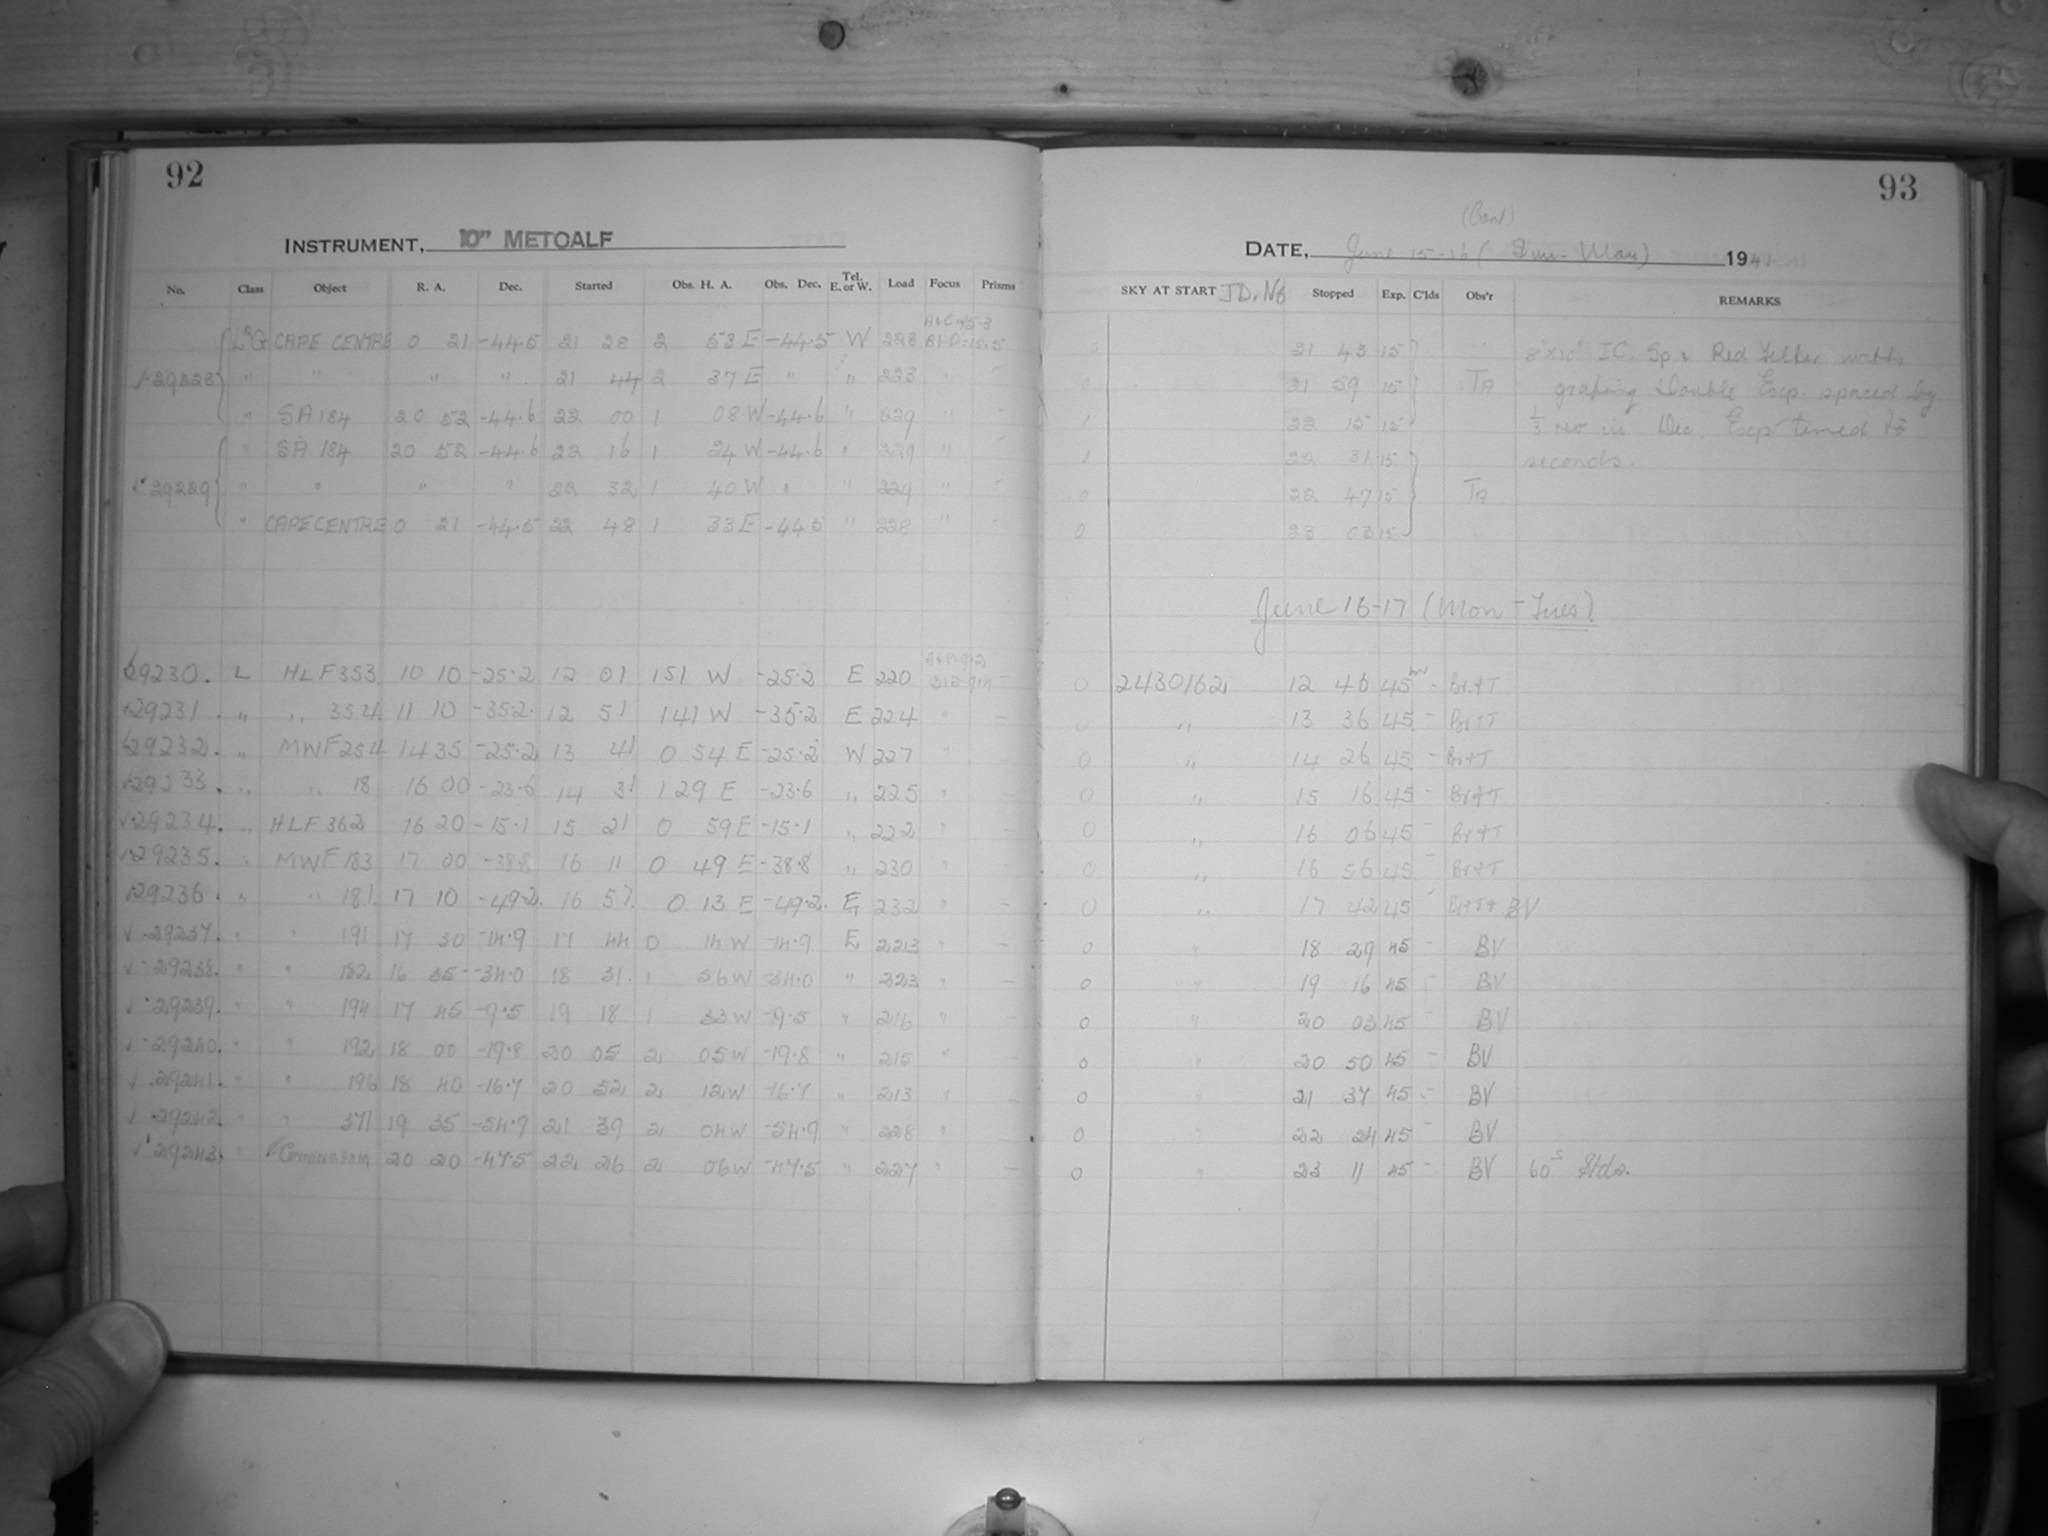 92
INSTRUMENT, 10" METCALF
No. Class Object R. A. Dec. Started Obs. H. A. Obs. Dec. Tel. E. or W. Load Focus Prisms
CAPE CENTRE 0 21 -44.5 21 28 2 53 E -44.5 W 228
29228 " " " " 21 44 2 37 E " " 223 "
" SA 184 20 52 -44.6 22 00 1 08 W -44.6 " 229 "
" SA 184 20 52 -44.6 22 16 1 24 W -44.6 " 229 "
29229 " " " " 22 32 1 40 W " " 229 "
" CAPE CENTRE 0 21 -44.5 22 48 1 33 E -44.5 " 228 "
29230. L HLF 353 10 10 -25.2 12 01 1 51 W -25.2 E 220
29231. " " 354 11 10 -35.2 12 51 1 41 W -35.2 E 224 "
29232. " MWF 254 14 35 -25.2 13 41 0 54 E -25.2 W 227 "
29233. " " 18 16 00 -23.6 14 31 1 29 E -23.6 " 225 "
29234. " HLF 362 16 20 -15.1 15 21 0 59 E -15.1 " 222 "
29235. " MWF 183 17 00 -38.8 16 11 0 49 E -38.8 " 230 "
29236. " " 181 17 10 -49.2 16 57 0 13 E -49.2 E 232 "
29237. " " 191 17 30 -14.9 17 44 0 14 W -14.9 E 223 "
29238. " " 182 16 35 -34.0 18 31 1 56 W -34.0 " 223 "
29239. " " 194 17 45 -9.5 19 18 1 33 W -9.5 " 216 "
29240. " " 192 18 00 -19.8 20 05 2 05 W -19.8 " 215 "
29241. " " 196 18 40 -16.7 20 52 2 12 W -16.7 " 213 "
29242. " " 371 19 35 -54.9 21 39 2 04 W -54.9 " 228 "
29243. " CUNNINGHAM 20 20 -47.5 22 26 2 06 W -47.5 " 227 "
93
(Cont)
DATE, June 15-16 (Sun-Mon) 1941
SKY AT START JD. No Stopped Exp. C'lds Obs'r REMARKS
21 43 15 8"x10" IC. Sp. Red filter with
21 59 15 TA grating Double Exp. spaced by
22 15 15 1/3 rev in Dec. Exp timed to
22 31 15 seconds.
0 22 47 15 TA
0 23 03 15
June 16-17 (Mon-Tues)
0 2430162 12 46 45m - Br+T
0 " 13 36 45 - Br+T
0 " 14 26 45 - Br+T
0 " 15 16 45 - Br+T
0 " 16 06 45 - Br+T
0 " 16 56 45 - Br+T
0 " 17 42 45 - Br+T+BV
0 " 18 29 45 - BV
0 " 19 16 45 - BV
0 " 20 03 45 - BV
0 " 20 50 45 - BV
0 " 21 37 45 - BV
0 " 22 24 45 - BV
0 " 23 11 45 - BV 60s Stds.